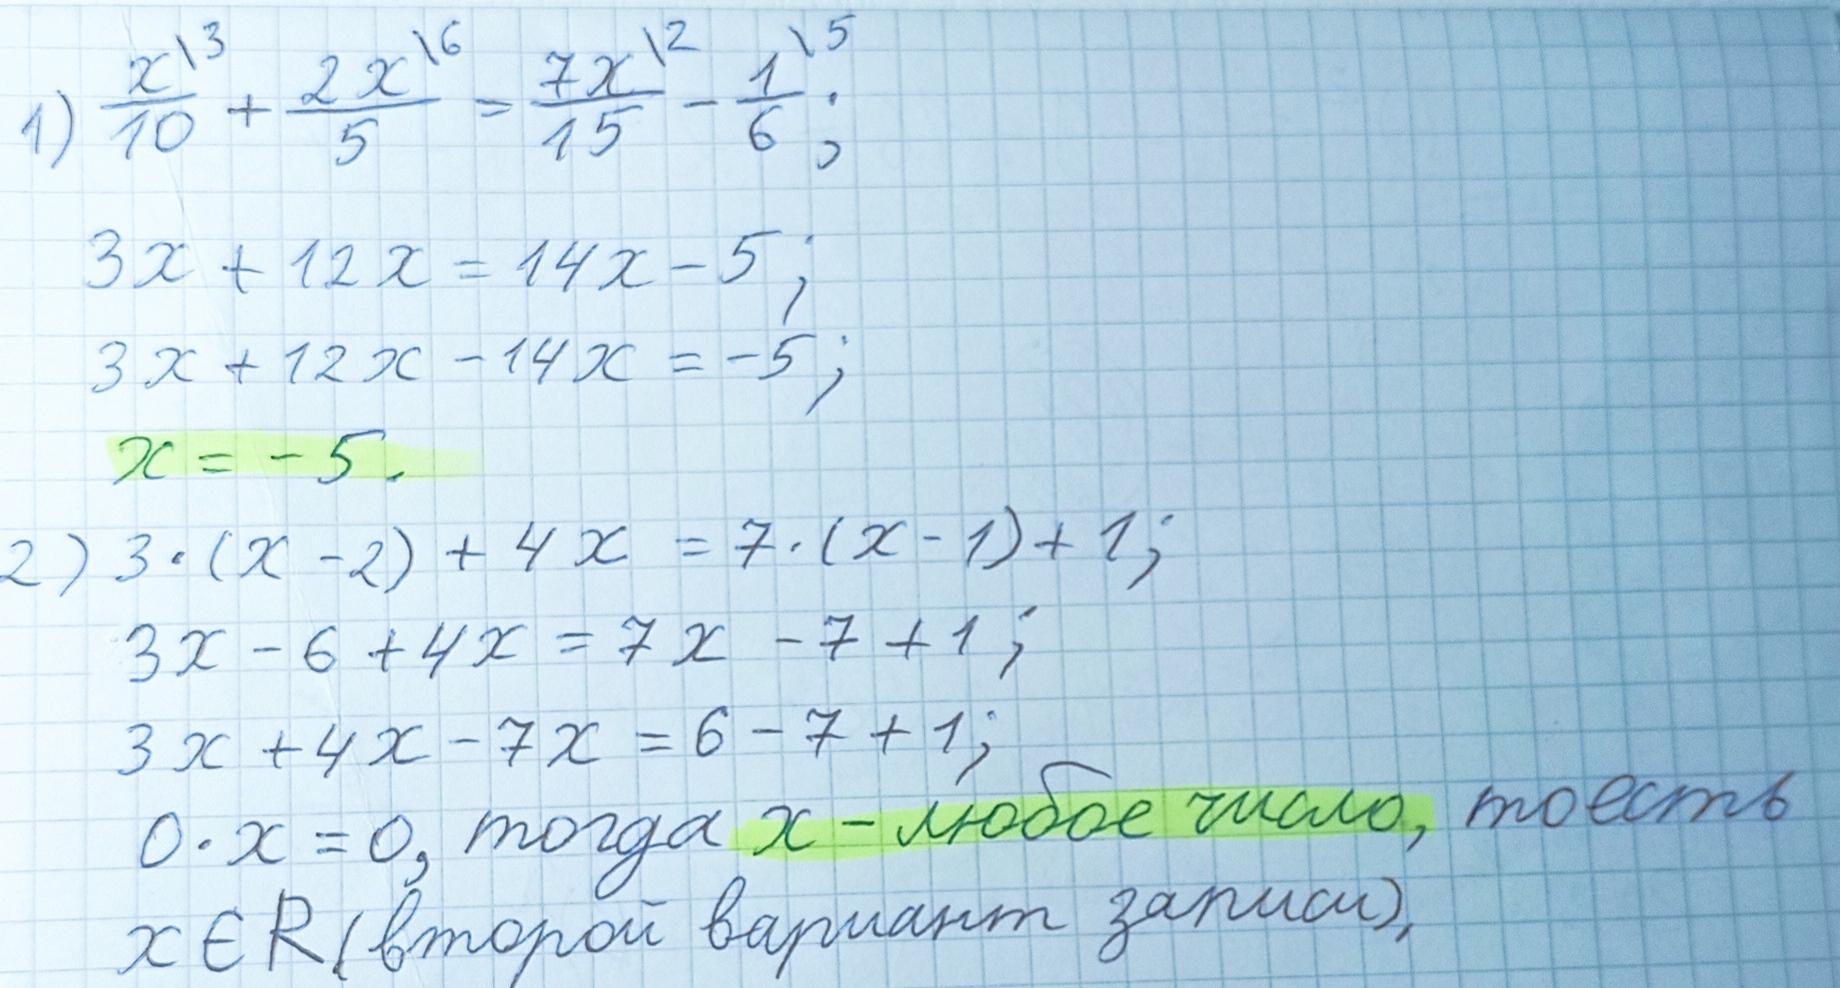 1) x\3/10 + 2x\6/5 = 7x\2/15 - 1\5/6;
3x + 12x = 14x - 5;
3x + 12x - 14x = -5;
x = -5.
2) 3·(x - 2) + 4x = 7·(x - 1) + 1;
3x - 6 + 4x = 7x - 7 + 1;
3x + 4x - 7x = 6 - 7 + 1;
0·x = 0, тогда x - любое число, тоесть
x∈R (второй вариант записи),